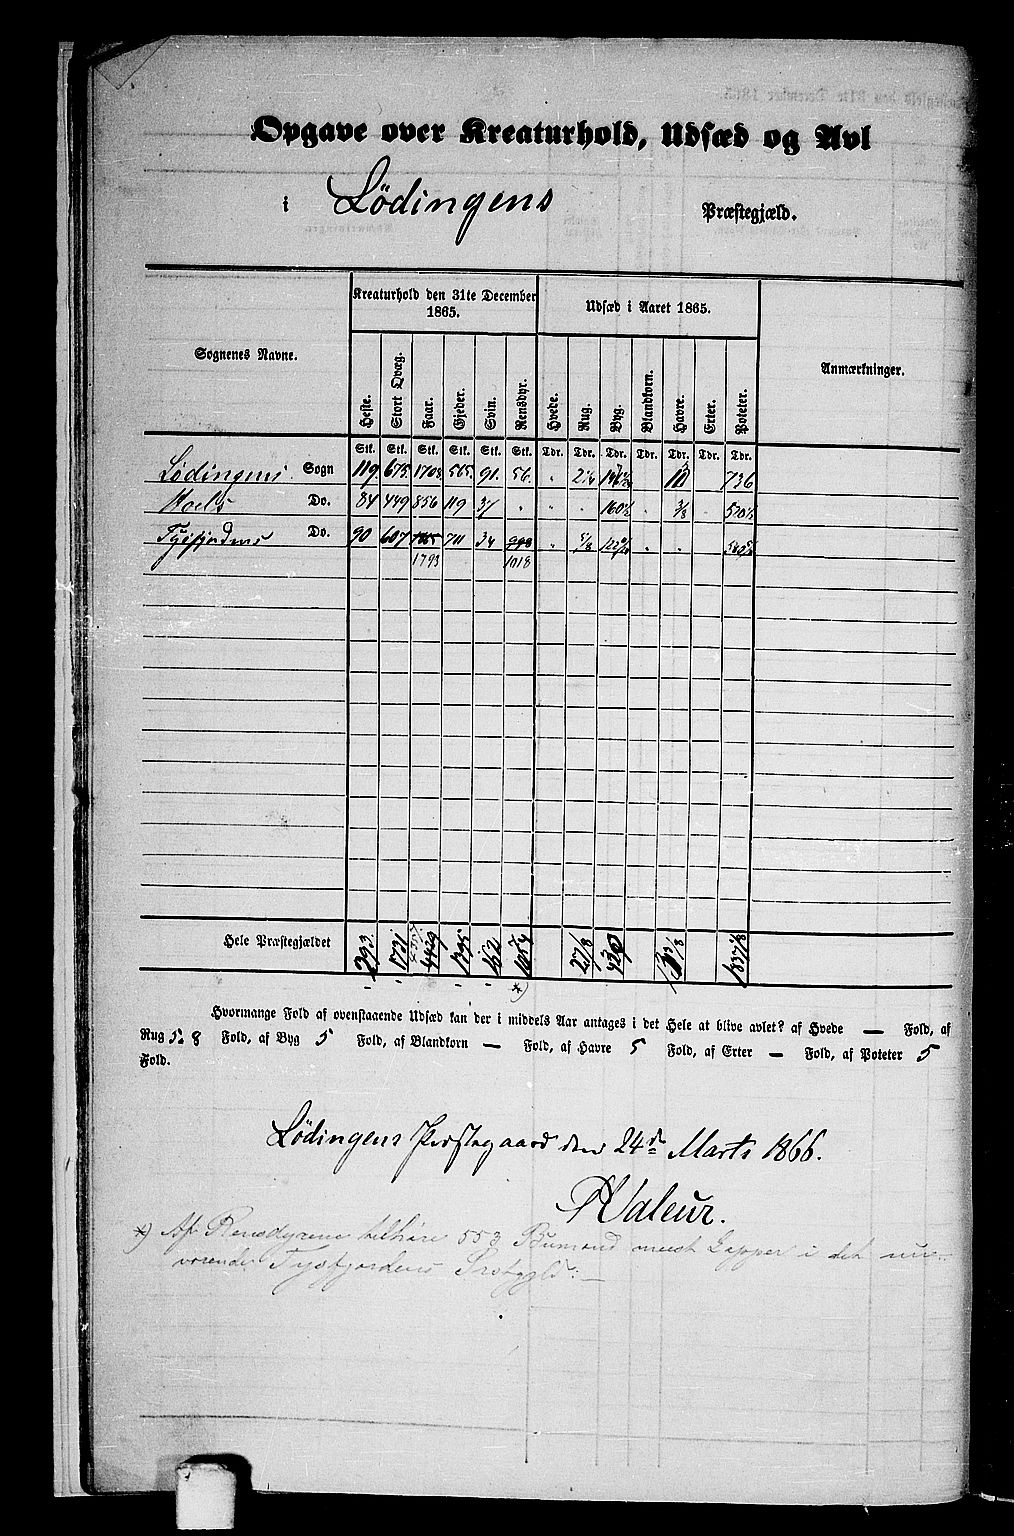 Opgave over Kreaturhold, Udsæd og Avl
i Lödingens Præstegjæld.
Kreaturhold den 31te December 1865.
Udsæd i Aaret 1865.
Sognenes Navne.
Anmærkninger.
Heste. Stort Qvæg. Faar. Gjeder. Svin. Rensdyr. Hvede. Rug. Byg. Blandkorn. Havre. Erter. Poteter.
Stk. Stk. Stk. Stk. Stk. Stk. Tdr. Tdr. Tdr. Tdr. Tdr. Tdr. Tdr.
Lödingens Sogn 119. 675. 1708. 565. 91. 56. " 2¼ " 736
Hoels Do. 84 449 856 119 37 " " " 160½ " ⅜ " 520½
Do. 90 607 711 34 " ⅝ " "
1793 1018
Hele Præstegjældet 293 1731 162 1074
*)
Hvormange Fold af ovenstaaende Udsæd kan der i middels Aar antages i det Hele at blive avlet? af Hvede — Fold, af
Rug 5 à 8 Fold, af Byg 5 Fold, af Blandkorn — Fold, af Havre 5 Fold, af Erter — Fold, af Poteter 5
Fold.
Lödingens Præstegaard den 24de Marts 1866.
Valeur.
*) Af Rensdyrene tilhöre 553 meest Lapper i det nu-
værende Tysfjordens